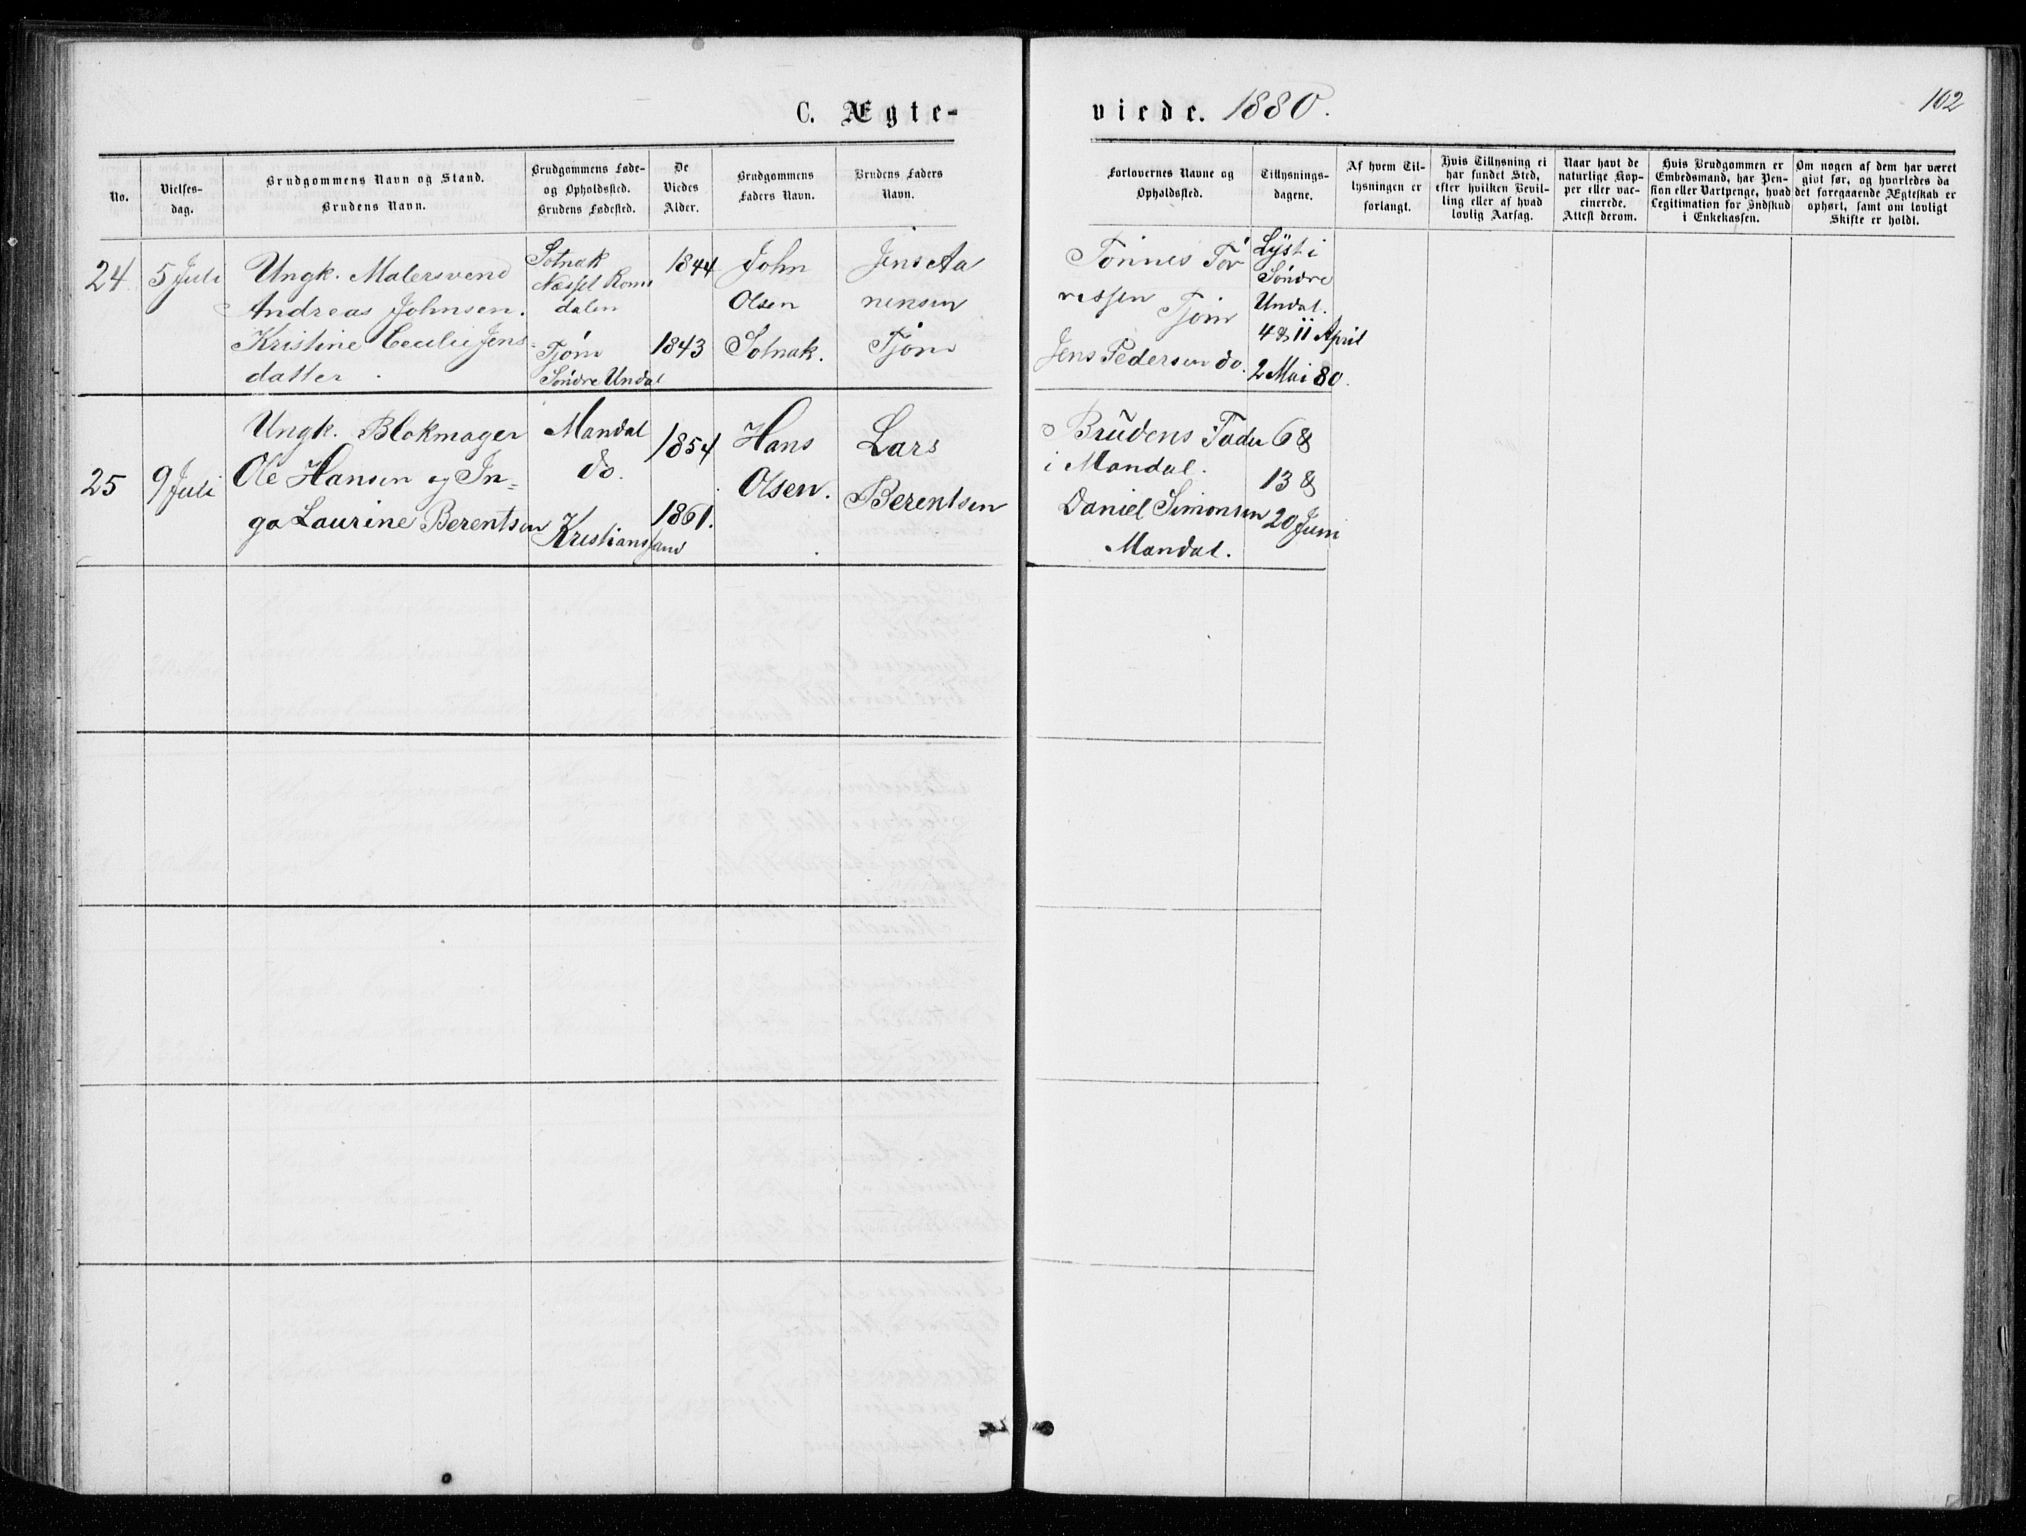 C. Ægte-
viede. 1880.
102
No.
Vielses-
dag.
Brudgommens Navn og Stand.
Brudens Navn.
Brudgommens Føde-
og Opholdssted.
Brudens Fødested.
De
Viedes
Alder.
Brudgommens
Faders Navn.
Brudens Faders
Navn.
Forlovernes Navne og
Opholdssted.
Tillysnings-
dagene.
Af hvem Til-
lysningen er
forlangt.
Hvis Tillysning ei
har fundet Sted,
efter hvilken Bevil-
ling eller af hvad
lovlig Aarsag.
Naar havt de
naturlige Kop-
per eller vac-
cinerede.
Attest derom.
Hvis Brudgommen er
Embedsmand, har Pen-
sion eller Vartpenge, hvad
Legitimation for Indskud
i Enkekassen.
Om nogen af dem har været
gift før, og hvorledes da
det foregaaende Ægteskab er
ophørt, samt om lovligt
Skifte er holdt.
24
5 Juli
Ungk. Malersvend
Andreas Johnsen.
Kristine Cecilie Jens
datter.
Solnak
Næsset Roms
dalen
Tjøm
Søndre Undal
1844
1843
John
Olsen
Solnak.
Jens Aa
nensen
Tjøm
Tønnes Tør
resen Tjøm
Jens Pedersen do.
Lyst i
Søndre
Undal.
4 & 11 April
2 Mai 80.
25
9 Juli
Ungk. Blokmager
Ole Hansen og In-
ga Laurine Berentsen
Mandal
do.
Kristiansand
1854
1861.
Hans
Olsen.
Lars
Berentsen
Brudens Fader
i Mandal.
Daniel Simonsen
Mandal.
6 &
13 &
20 Juni